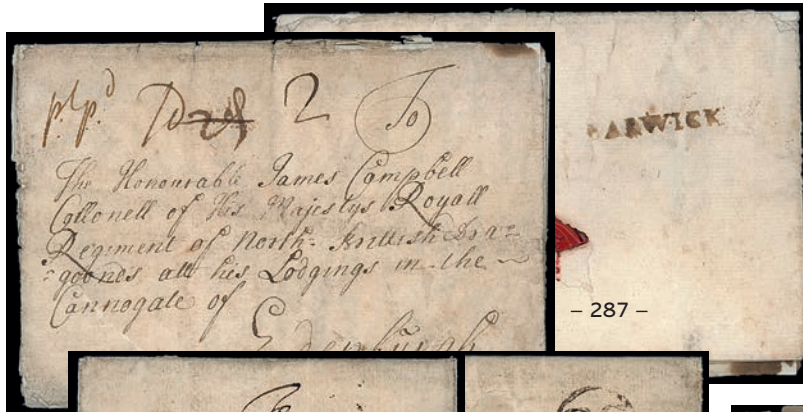 p.d p.d 2 To
The Honourable James Campbell
Collonell of His Majestys Royall
Regiment of North-Brittish Dra=
=goones att his Lodgings in the
Cannogate of
Edenburgh
BARWICK
– 287 –